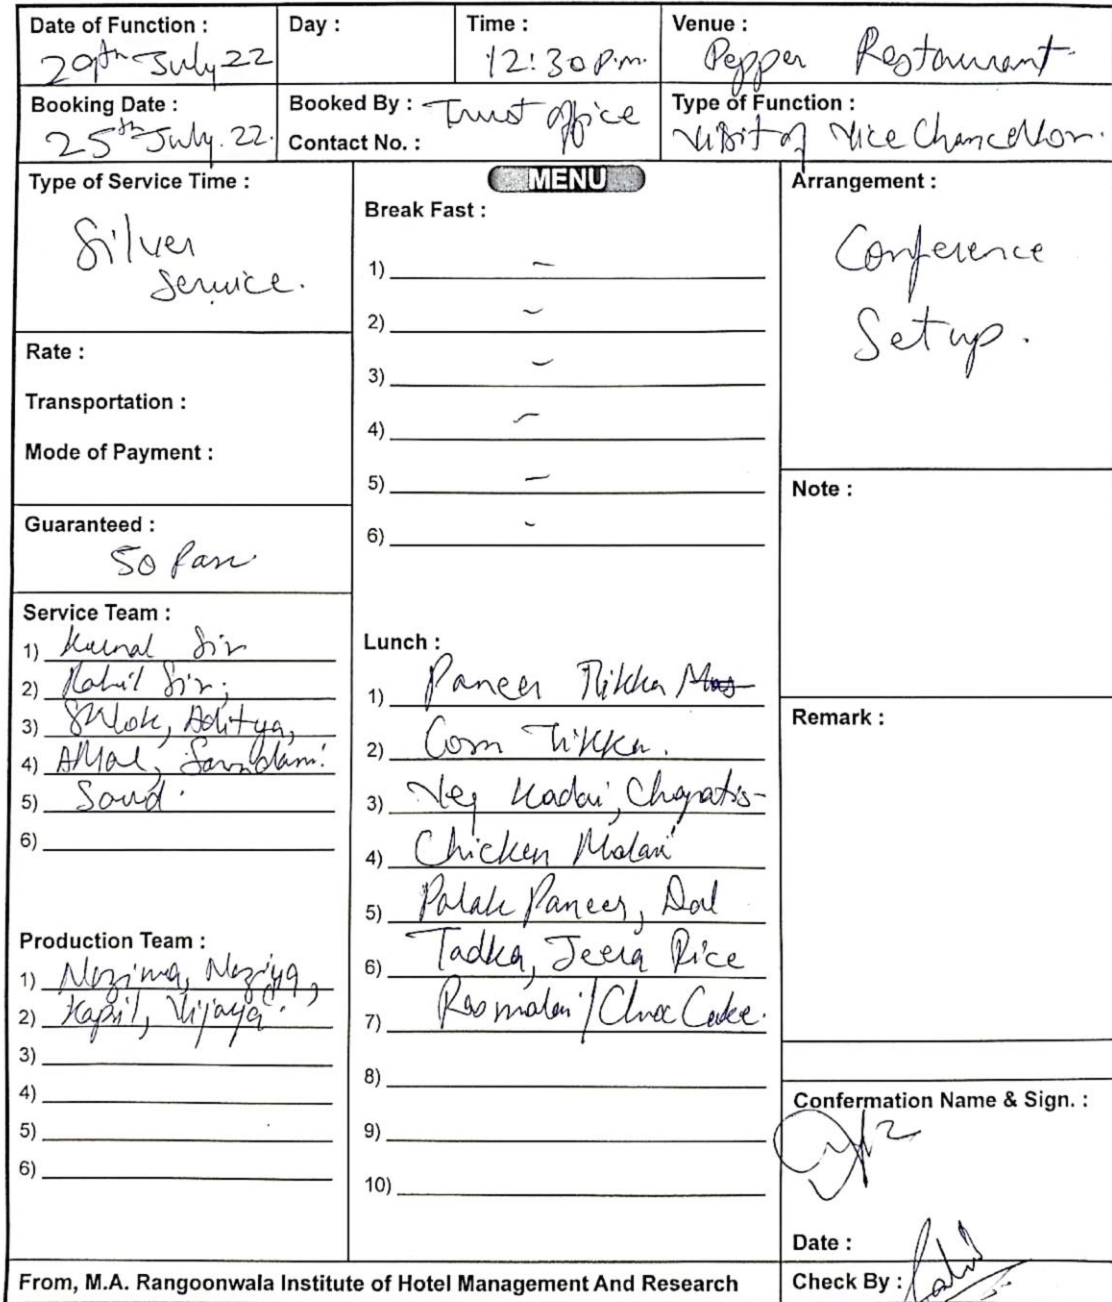 Date of Function :
29th July 22
Day :
Time :
12:30 P.m.
Venue :
Pepper Restaurant
Booking Date :
25th July. 22.
Booked By : Trust office
Contact No. :
Type of Function :
Visit of Vice Chancellor.
Type of Service Time :
Silver
Service.
Rate :
Transportation :
Mode of Payment :
Guaranteed :
50 Pax
Service Team :
1) Kunal Sir
2) Rahil Sir,
3) Shlok, Aditya,
4)
5) Saud.
6)
Production Team :
1) Nazima, Naziya,
2) Kapil, Vijaya.
3)
4)
5)
6)
MENU
Break Fast :
1) -
2) -
3) -
4) -
5) -
6) -
Lunch :
1) Paneer Tikka
2) Corn Tikka.
3) Veg Kadai, Chapatis
4) Chicken Malai
5) Palak Paneer, Dal
6) Tadka, Jeera Rice
7) Rasmalai/Choc Cake.
8)
9)
10)
Arrangement :
Conference
Setup.
Note :
Remark :
Confermation Name & Sign. :
Date :
Check By :
From, M.A. Rangoonwala Institute of Hotel Management And Research